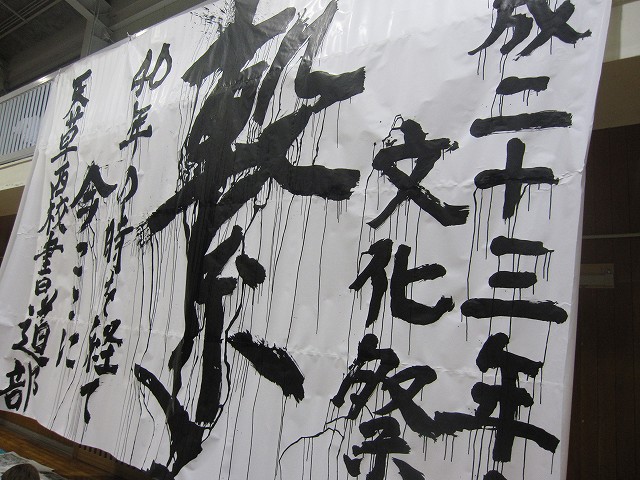 成二十三年
文化祭
繋
40年の時を経て
今ここに
天草西校書道部